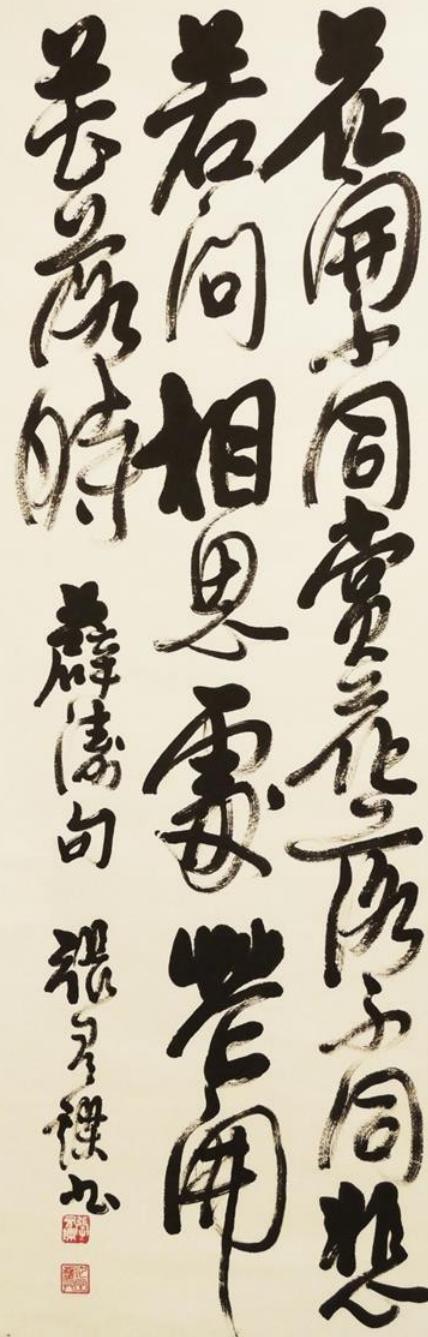 花開不同賞花落不同悲
若问相思處花開
花落時 薛濤句 張 書